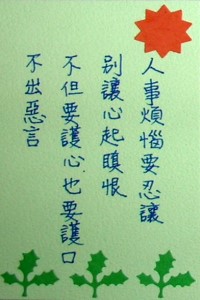 人事煩惱要忍讓
別讓心起瞋恨
不但要護心也要護口
不出惡言